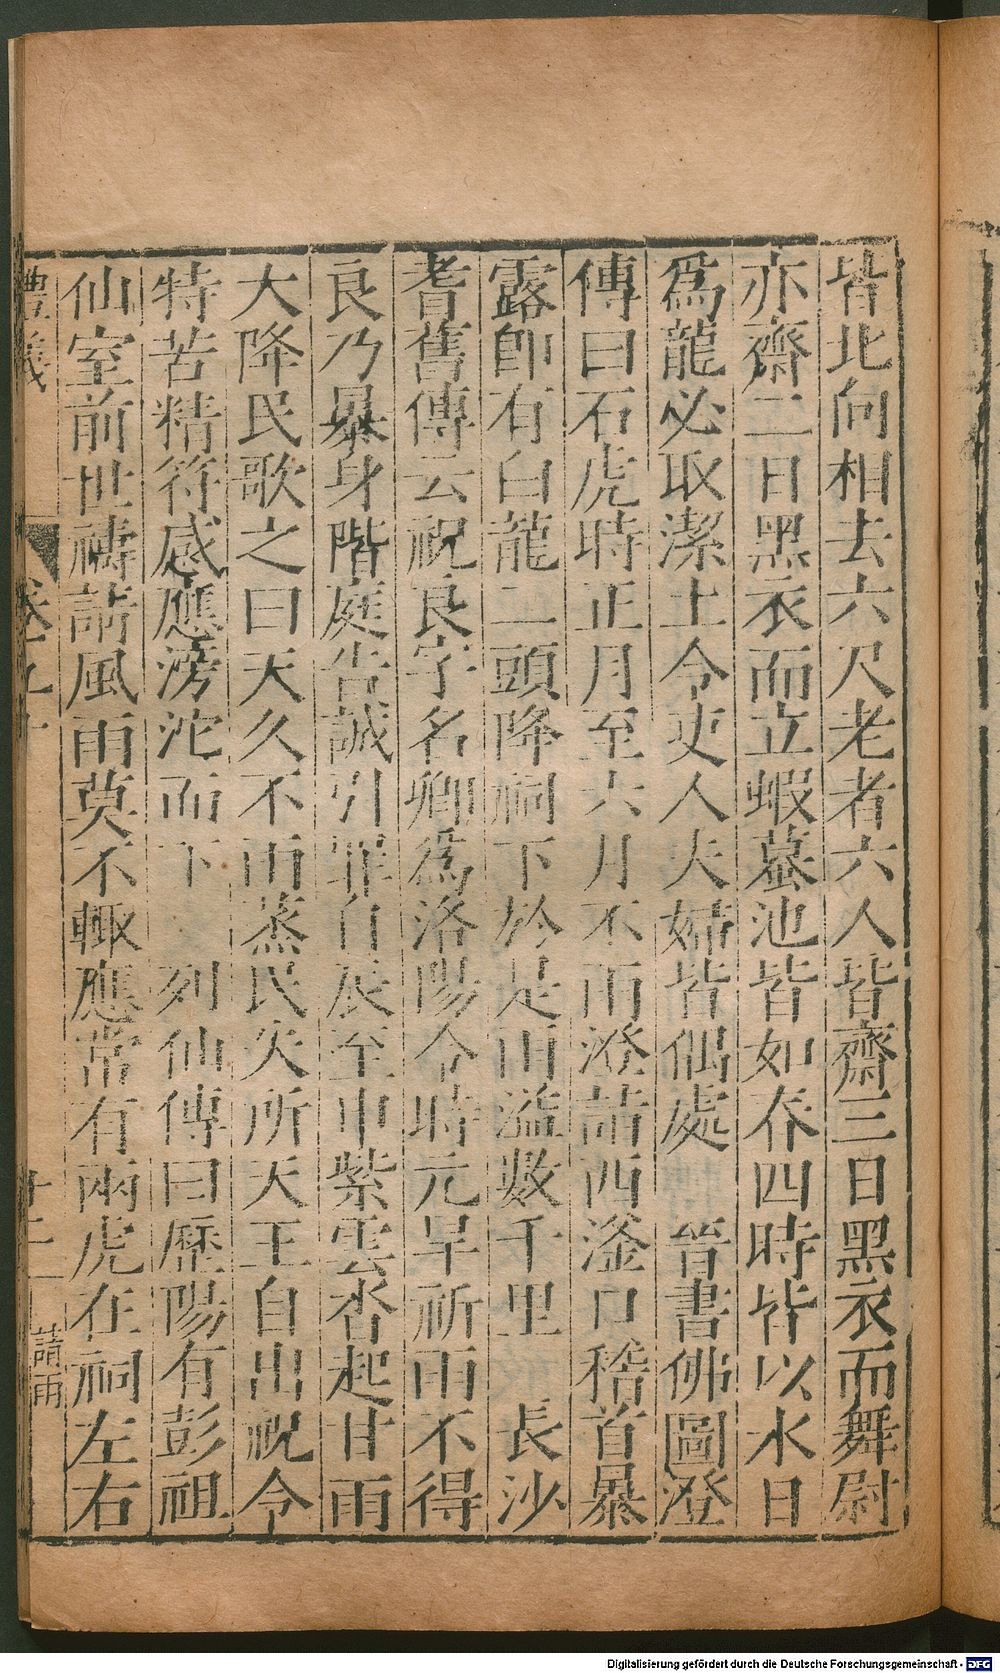 皆北向相去六尺老者六人皆齋三日黑衣而舞尉
亦齋二日黑衣而立蝦蟇池皆如春四時皆以水日
爲龍必取潔土令吏人夫婦皆偶處 晉書佛圖澄
傳曰石虎時正月至六月不雨澄請西滏口稽首暴
露即有白龍二頭降祠下於是雨溢數千里 長沙
耆舊傳云祝良字名卿爲洛陽令時元旱祈雨不得
良乃暴身階庭告誠引罪自辰至申紫雲沓起甘雨
大降民歌之曰天久不雨蒸民失所天王自出祝令
特苦精符感應滂沱而下 列仙傳曰歷陽有彭祖
仙室前世禱請風雨莫不輙應常有兩虎在祠左右
禮義
卷九十
十二
請雨
Digitalisierung gefördert durch die Deutsche Forschungsgemeinschaft - DFG